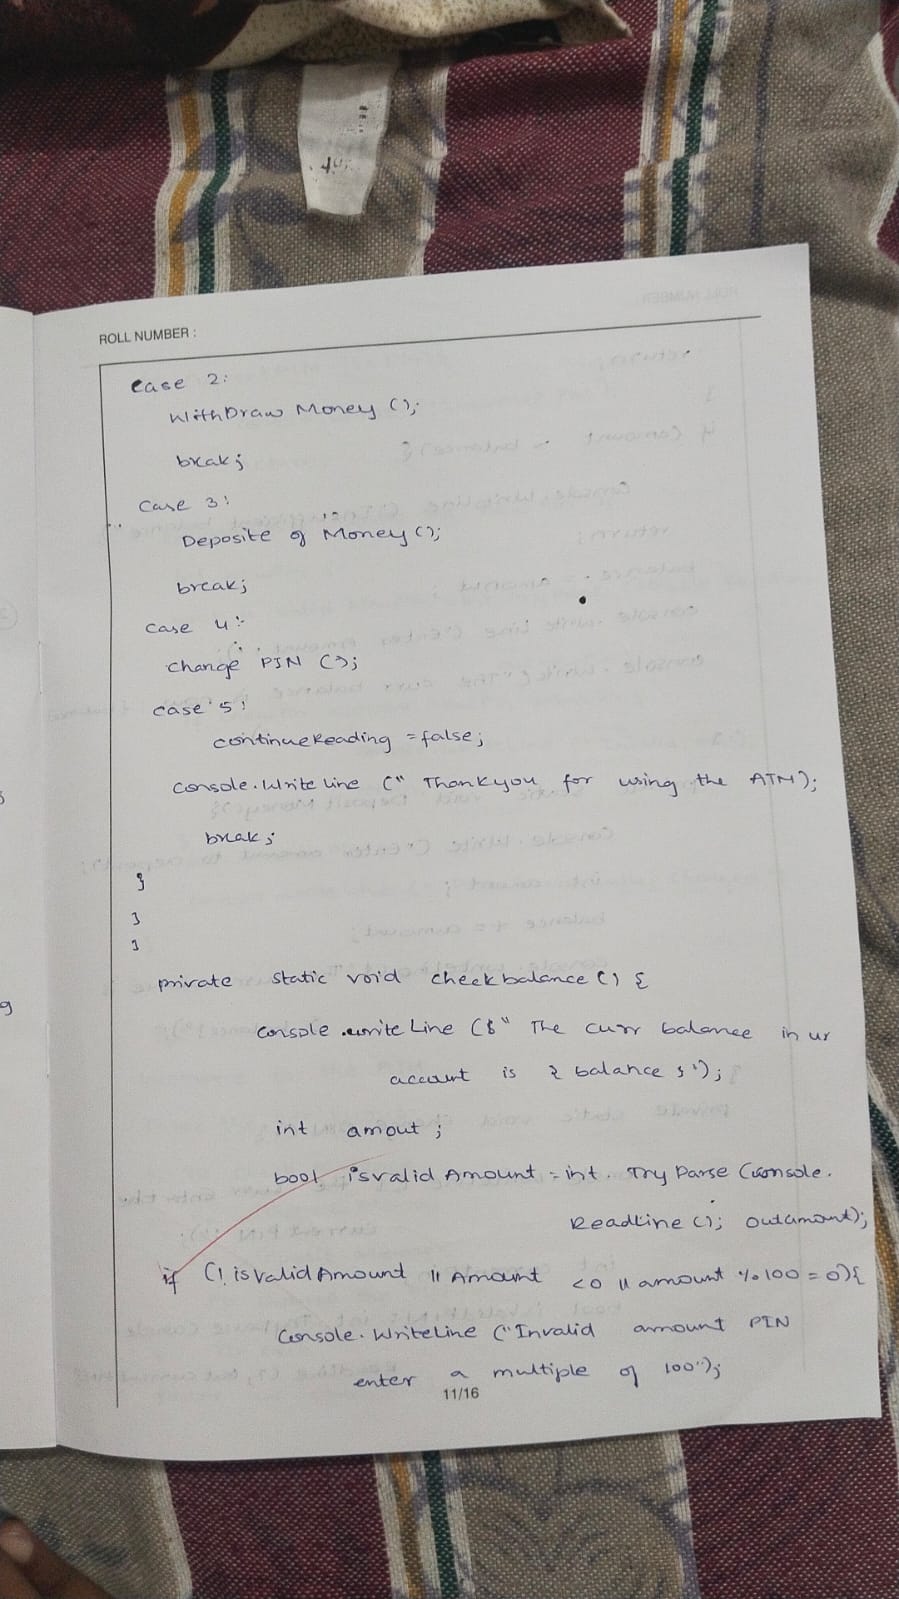 ROLL NUMBER :
case 2:
WithDraw Money ();
break;
case 3:
Deposite of Money ();
break;
case 4:
change PIN ();
case 5:
continueReading = false;
Console.Write line (" Thankyou for using the ATM);
break;
}
}
}
private static void checkbalance () {
console.write Line ($" The curr balance in ur
account is { balance }");
int amout ;
bool isvalid Amount = int. Try Parse (console.
Readline (); outamount);
if (! isValid Amount || Amount <0 || amount %100 = 0){
Console. WriteLine ("Invalid amount PIN
enter a multiple of 100");
11/16